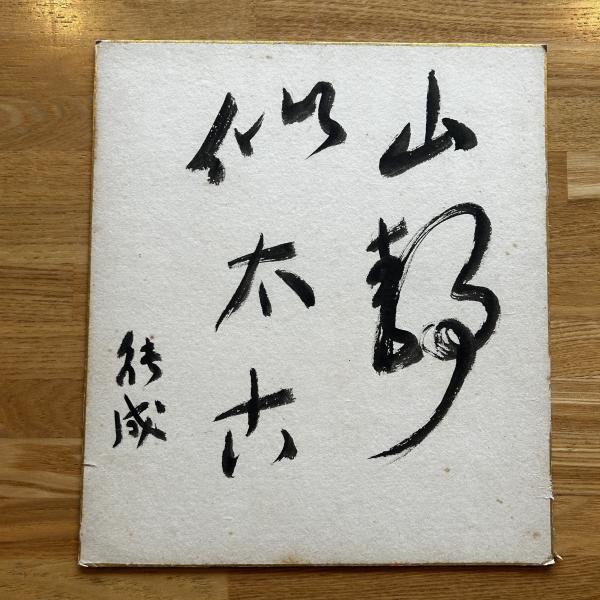 山静
似太古
能成